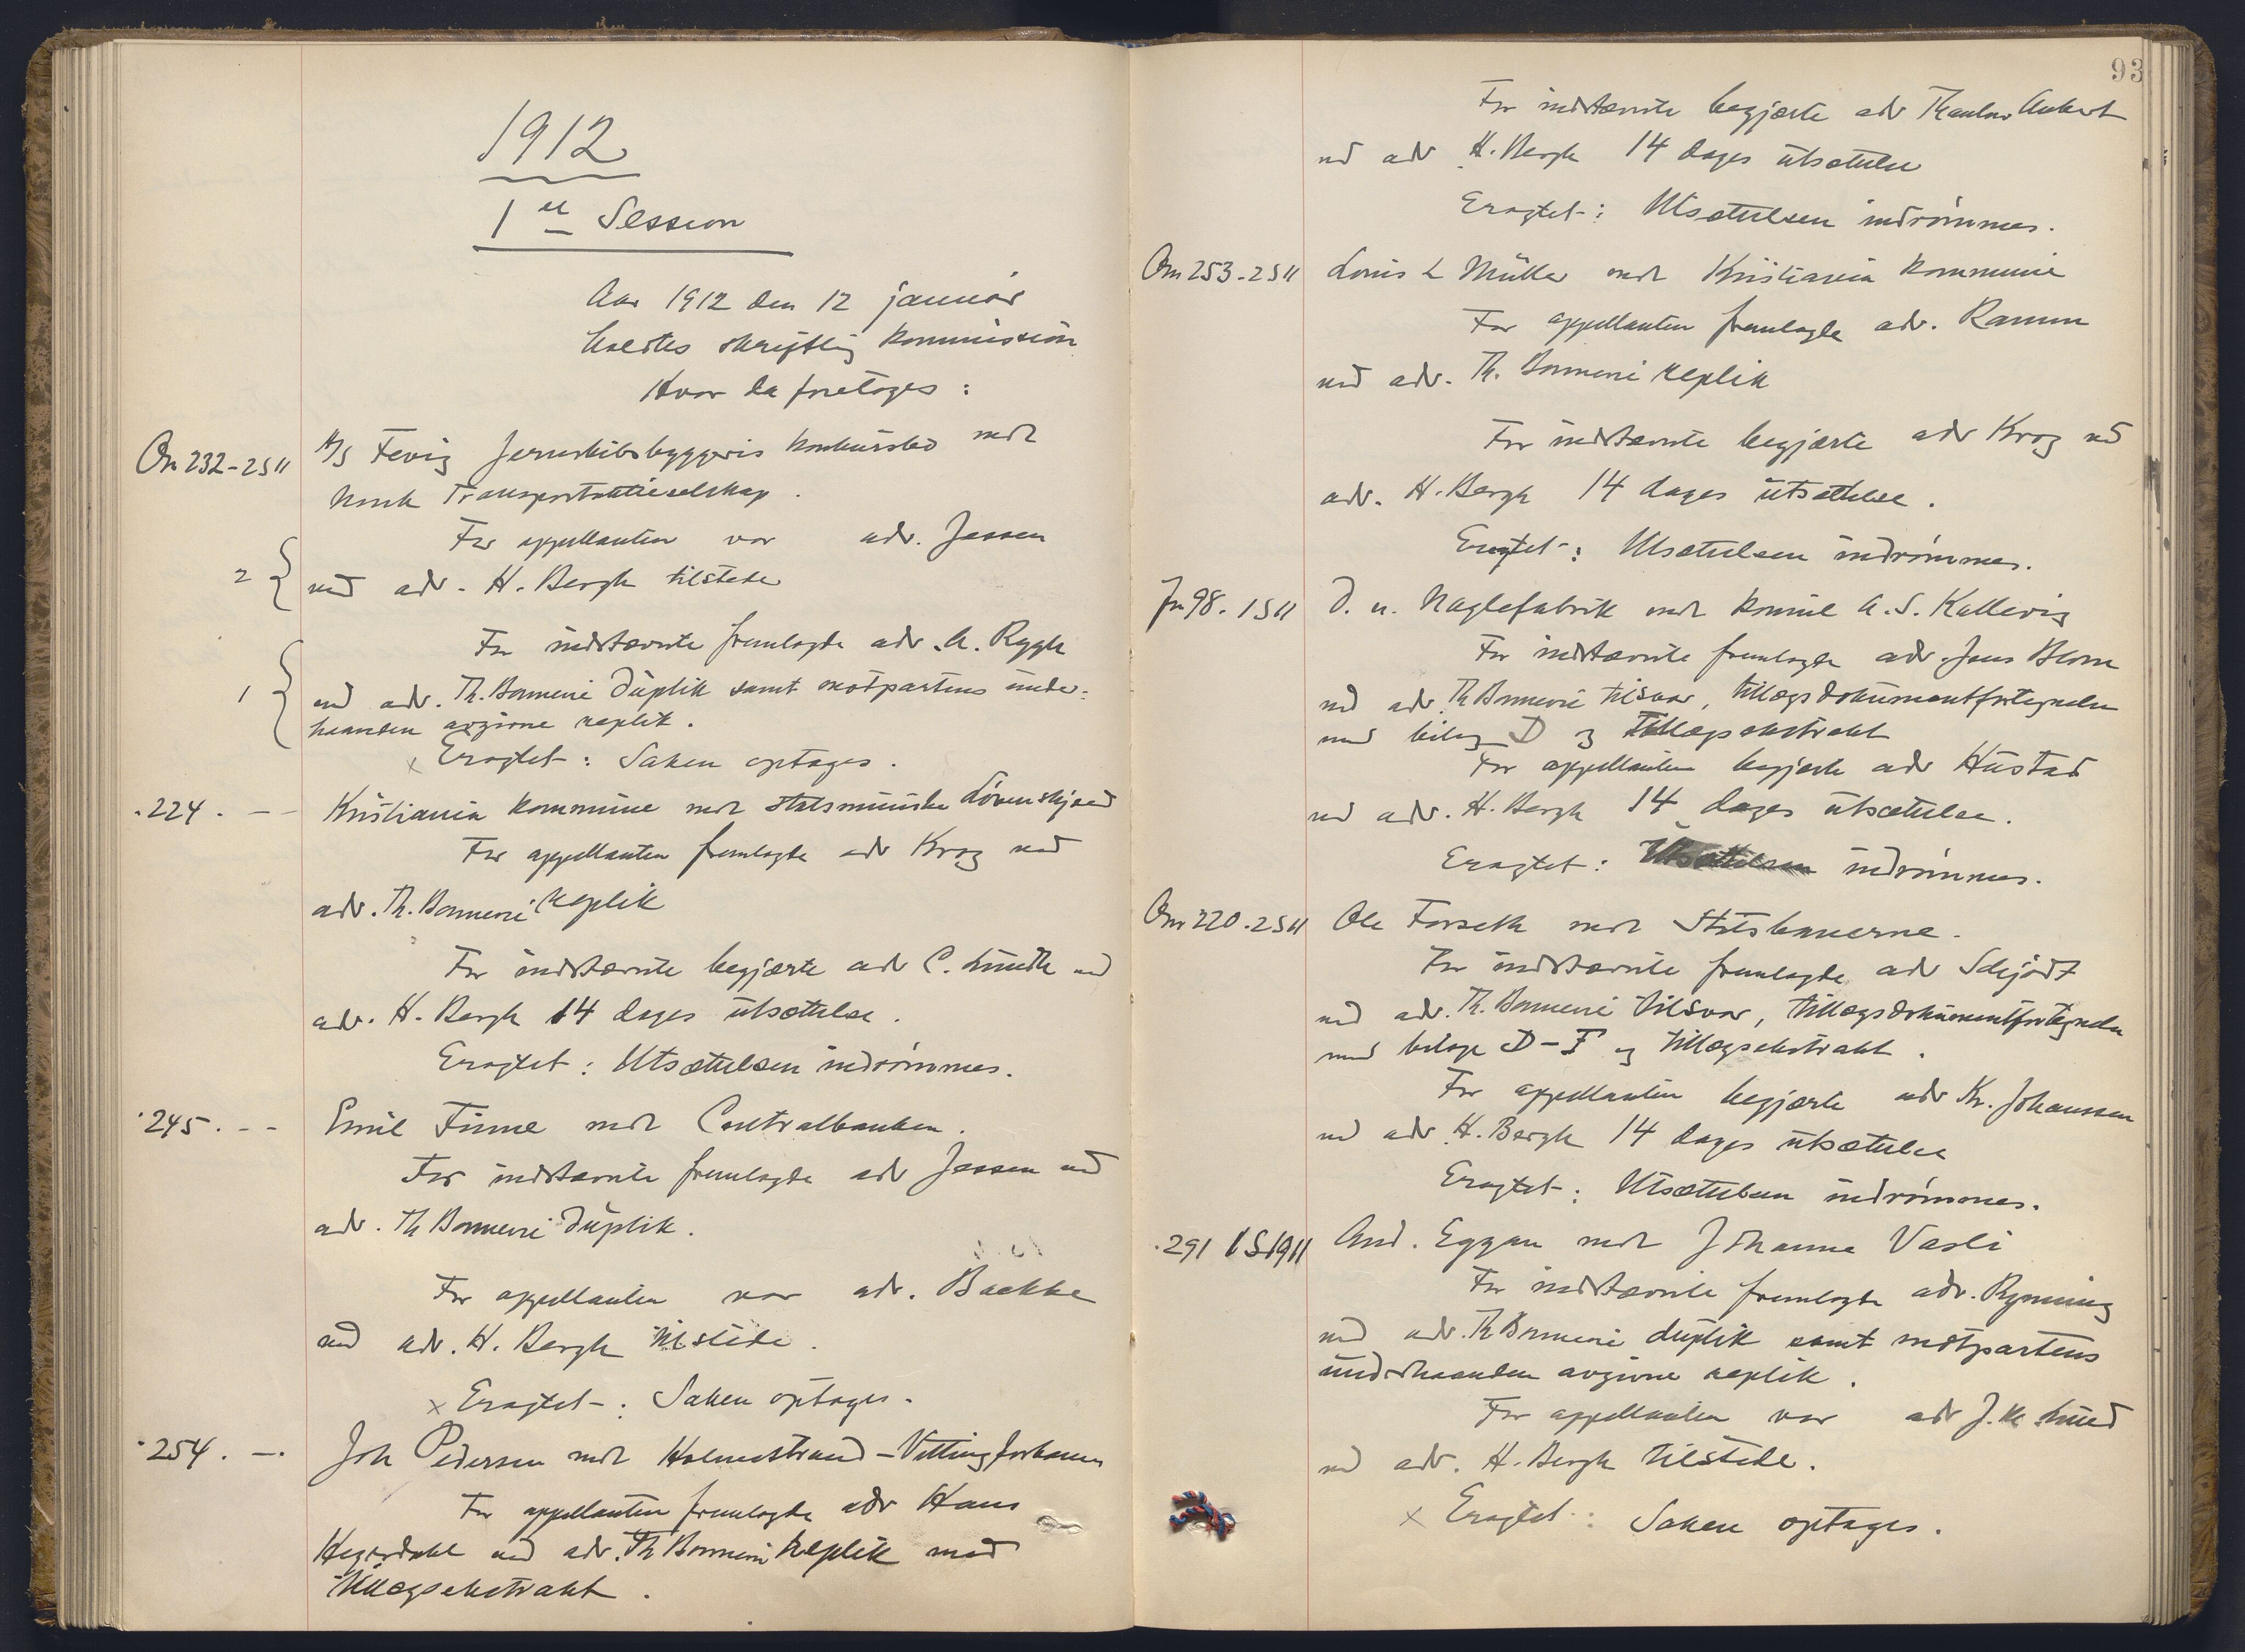 1912
1ste Session
Aar 1912 den 12 januar
holdtes skriftlig kommission
Hvor da foretoges:
On 232-2S11 A/S Fevig Jernskibsbyggeris konkursbo mot
Norsk Transportaktieselskap.
For appellanten var adv. Jessen
2 { ved adv. H. Bergh tilstede
For indstævnte fremlagde adv. A. Rygh
1 { ved adv. Th. Bonnevie duplik samt motpartens under-
haanden avgivne replik.
x Eragtet: Saken optages.
·224. - - Kristiania kommune mot statsminister Løvenskjold
For appellanten fremlagde adv Krog ved
adv. Th. Bonnevie replik
For indstævnte begjærte adv C. Lundh ved
adv. H. Bergh 14 dages utsættelse.
Eragtet: Utsættelsen indrømmes.
·245. - - Emil Finne mot Centralbanken.
For indstævnte fremlagde adv Jessen ved
adv. Th Bonnevie duplik.
For appellanten var adv. Backke
ved adv. H. Bergh tilstede.
x Eragtet: Saken optages.
·254. -. Joh Pedersen mot Holmestrand-Vittingfosbanen
For appellanten fremlagde adv Hans
ved adv. Th Bonnevie replik med
tillægsekstrakt.
93
For indstævnte begjærte adv Thaulow Aubert
ved adv H. Bergh 14 dages utsættelse
Eragtet: Utsættelsen indrømmes.
On 253-2S11 Louis L Müller mot Kristiania kommune
For appellanten fremlagde adv. Ramm
ved adv. Th. Bonnevie replik
For indstævnte begjærte adv Krog ved
adv. H. Bergh 14 dages utsættelse.
Eragtet: Utsættelsen indrømmes.
Fr 98. 1S11 D. n. Naglefabrik mot konsul A. S. Kallevig
For indstævnte fremlagde adv. Jens Blom
ved adv. Th Bonnevie tilsvar, tillægsdokumentfortegnelse
med bilag D og Tillægsekstrakt
For appellanten begjærte adv Hustad
ved adv. H. Bergh 14 dages utsættelse.
Eragtet: Utsættelsen indrømmes.
On 220.2S11 Ole Forseth mot Statsbanerne.
For indstævnte fremlagde adv Schjødt
ved adv. Th. Bonnevie tilsvar, tillægsdokumentfortegnelse
med bilage D-F og tillægsekstrakt.
For appellanten begjærte adv Kr. Johanssen
ved adv. H. Bergh 14 dages utsættelse
Eragtet: Utsættelsen indrømmes.
·291 1S1911 And. Eggan mot Johanna Vasli
For indstævnte fremlagde adv. Rynning
ved adv. Th Bonnevie duplik samt motpartens
underhaanden avgivne replik.
For appellanten var adv J. M. Lund
ved adv. H. Bergh tilstede.
x Eragtet: Saken optages.